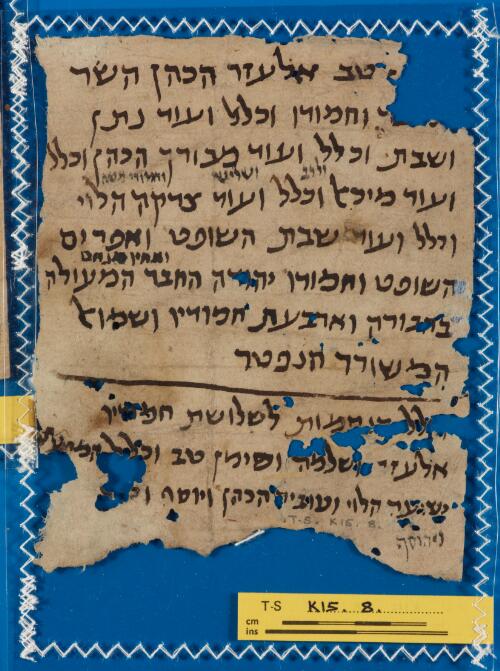 טב אלעזר הכהן השר
וחמודו וכלל ועוד נתן
ושבת וכלל ועוד מבורך הכהן וכלל
ועוד וכלל ועוד צדקה הלוי
וכלל ועוד שבת השופט ואפרים
השופט וחמודו יהודה החבר המעולה
בחבורה וארבעת חמודיו ושמוא
המשורר הנפטר
לשלושת חמודיו
אלעזר ושלמה וסימן טב וכלל
הלוי ועובדיה הכהן ויוסף
T-S. K15. 8.
ויהוסף
T-S K15. 8.
cm
ins